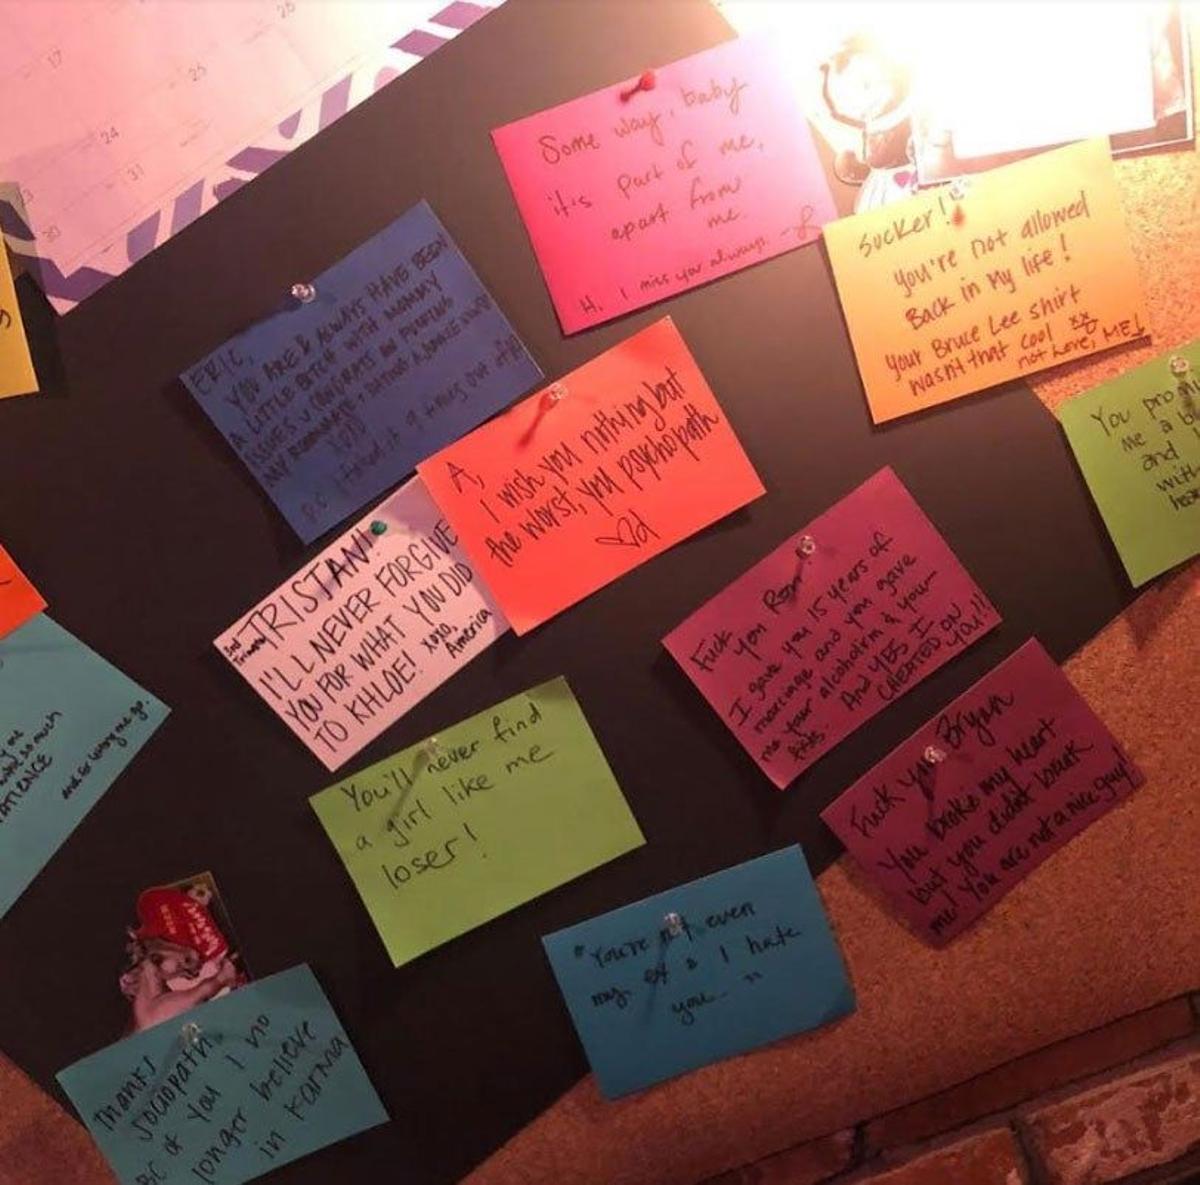 17
25
25
24
31
30
Some way, baby
it's part of me,
apart from
me.
H, I miss you always.
Sucker!
You're not allowed
Back in my life!
your Bruce Lee shirt
wasn't that cool xx
not love, ME!
ERIC,
YOU ARE & ALWAYS HAVE BEEN
A LITTLE BITCH WITH MOMMY
ISSUES. CONGRATS ON FUCKING
MY ROOMMATE, DATING A
XOXO
PS I faked it
A,
I wish you nothing but
the worst, you psychopath
♡d
You
me a
and
with
3rd
Trimester
TRISTAN!
I'LL NEVER FORGIVE
YOU FOR WHAT YOU DID
TO KHLOE! xoxo,
America
Fuck you
I gave you 15 years of
marriage and you gave
me your alcoholism & your
And YES I
CHEATED ON
YOU!!
Fuck you Bryan
You broke my heart
but you didn't break
me! You are not a nice guy!
You'll never find
a girl like me
loser!
"You're not even
my ex & I hate
you"
so much
PATIENCE
and for letting me go.
Thanks
sociopath
BC of you I no
longer believe
in Karma